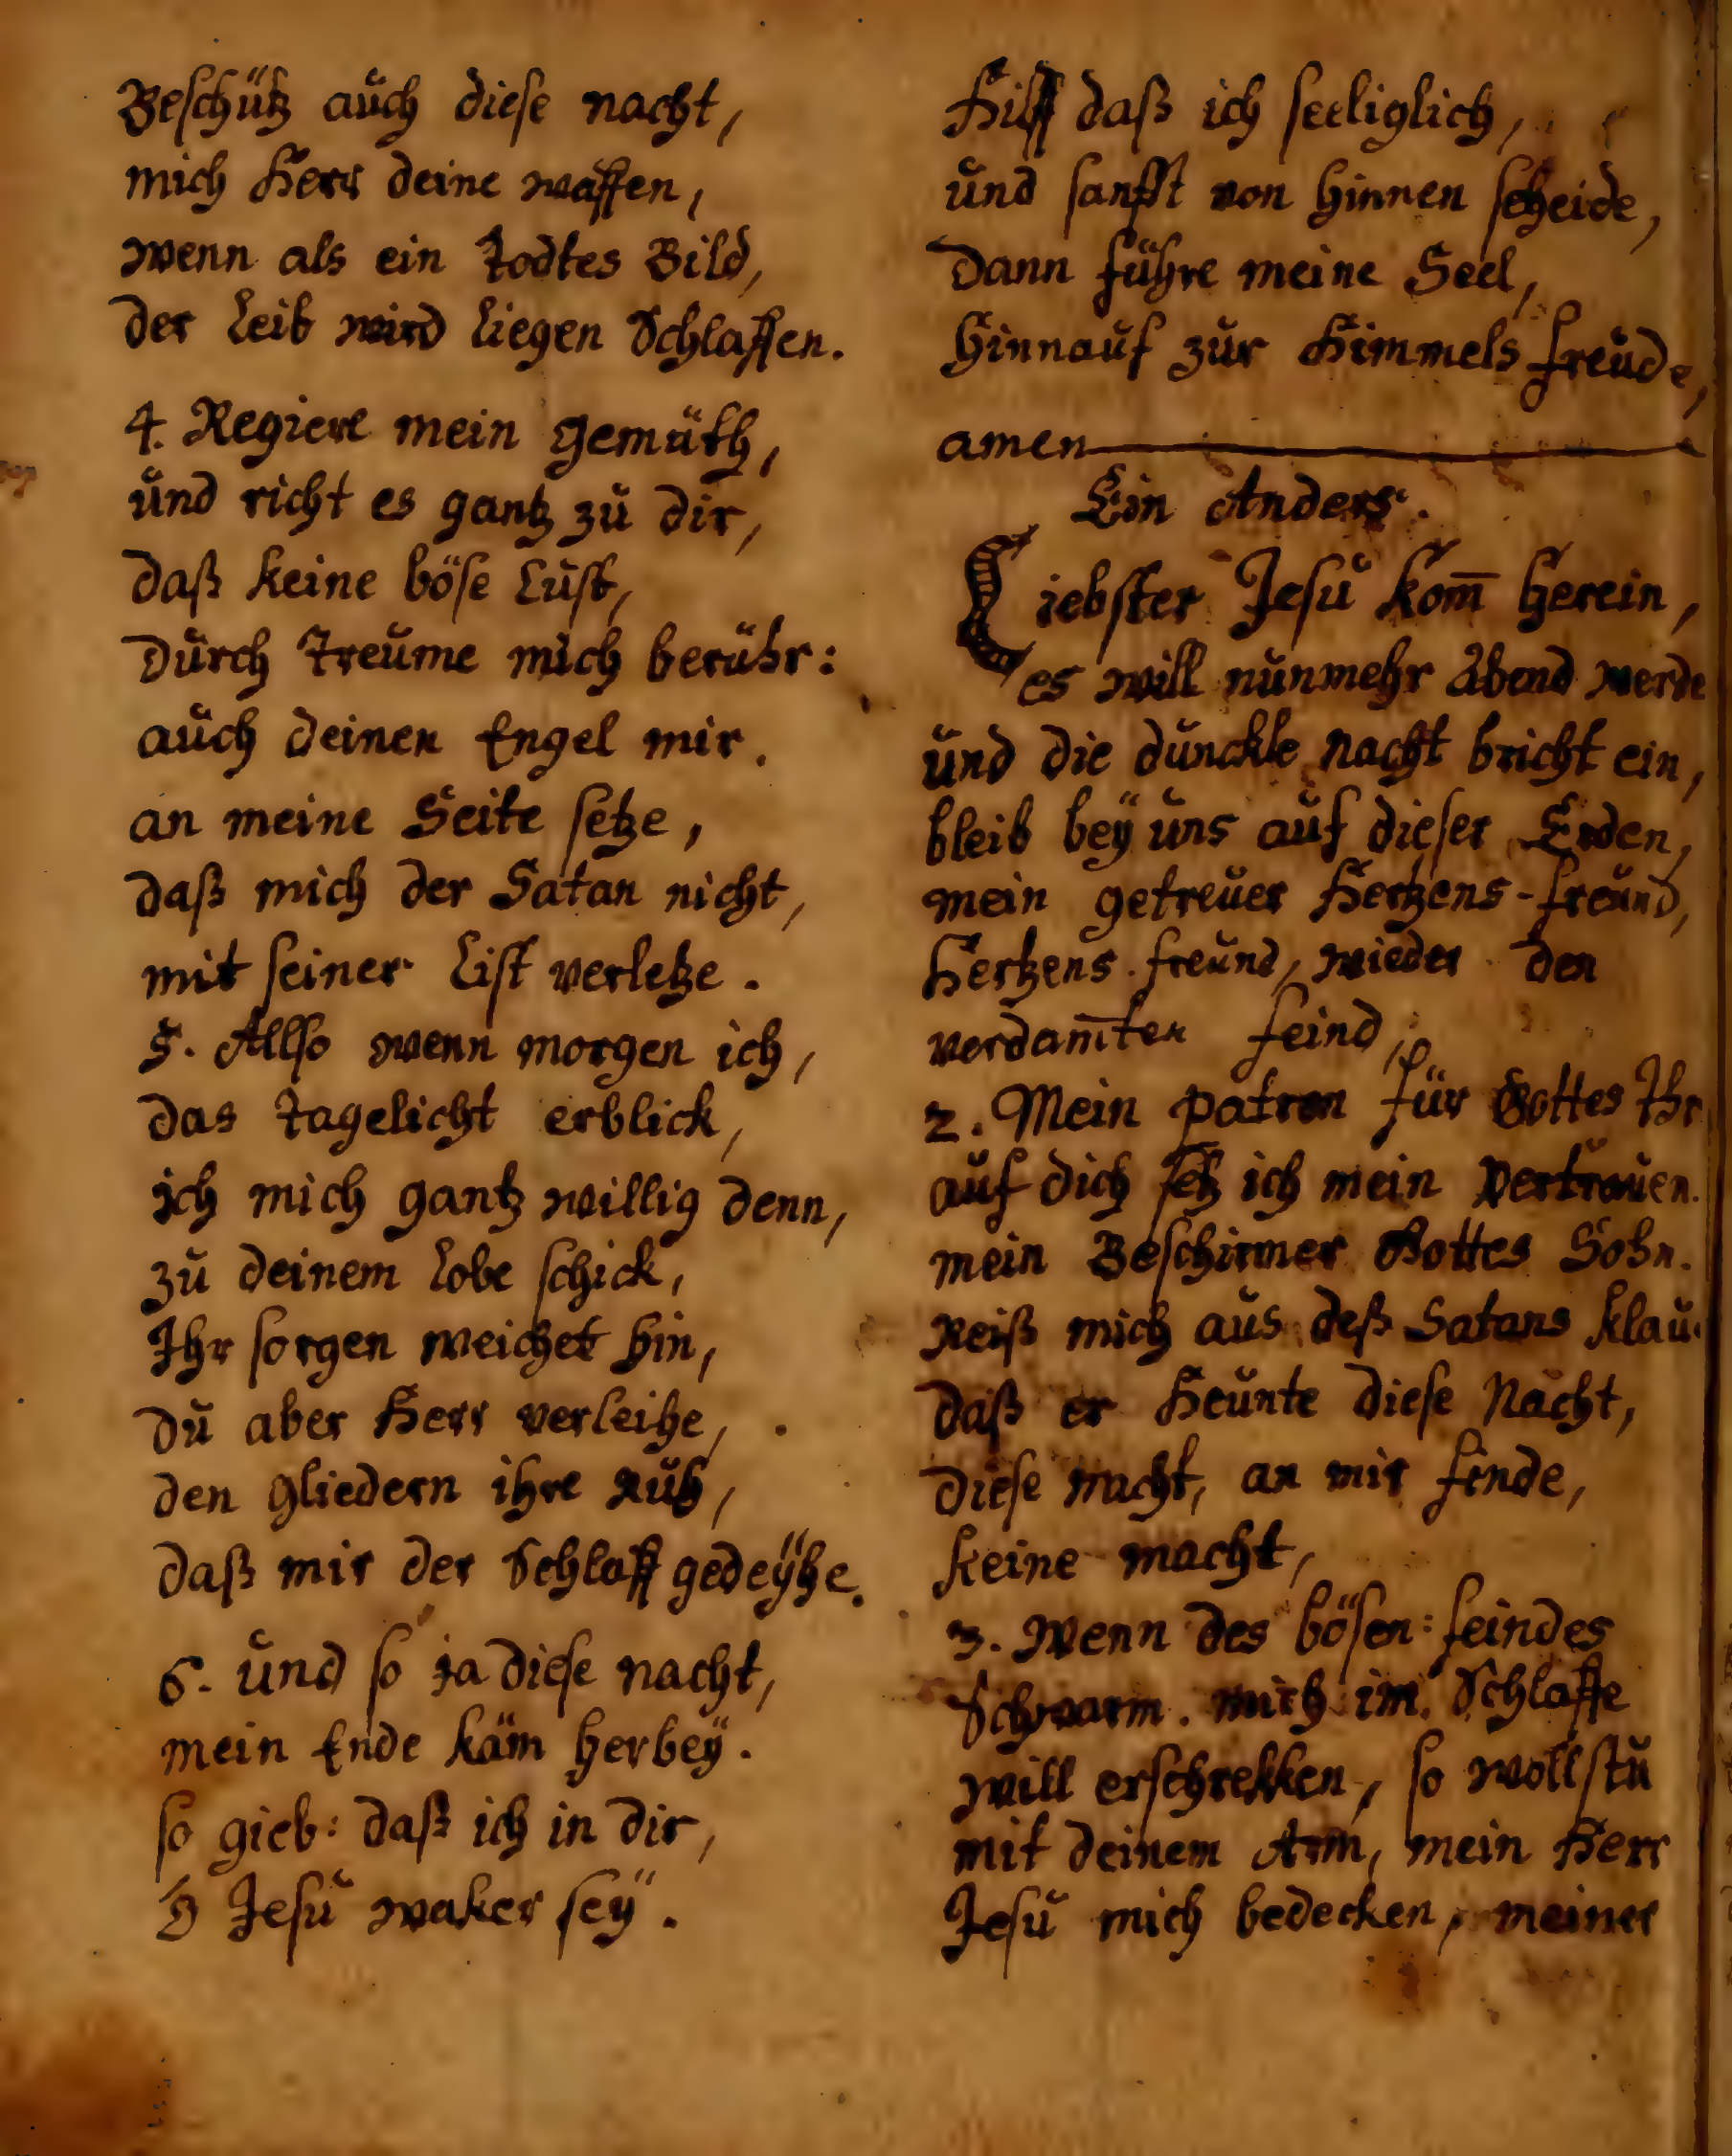 Beschütz auch diese nacht,
mich Herr deine waffen,
wenn als ein Todtes Bild,
der Leib wird liegen Schlaffen.
4. Regiere mein gemüth,
und richt es gantz zu dir,
daß keine böse Lust,
Durch Treume mich berühr:
auch deinen Engel mir.
an meine Seite setze,
daß mich der Satan nicht,
mit seiner List verletze.
5. Allso wenn morgen ich,
das tagelicht erblick,
ich mich gantz willig denn,
zu deinem Lobe schick,
Ihr sorgen weichet hin,
du aber Herr verleihe,
den gliedern ihre Ruh,
daß mir der Schlaff gedeÿhe.
6. und so ja diese nacht,
mein Ende käm herbeÿ.
so gieb: daß ich in dir,
O Jesu waker seÿ.
Hilff daß ich seeliglich,
und sanfft von hinnen scheide,
Dann führe meine Seel,
hinnauf zur Himmels freude,
amen
Ein Anders.
Liebster Jesu kom̄ herein,
es will nunmehr Abend werde
und die dunckle nacht bricht ein,
bleib beÿ uns auf dieser Erden,
mein getreuer Hertzens-freund,
Hertzens freund, wieder den
verdam̄ten feind,
2. Mein patron für Gottes Thr
auf dich setz ich mein Vertrauen.
mein Beschirmer Gottes Sohn.
Reiß mich aus deß Satans klau.
daß er Heunte diese Nacht,
diese nacht, an mir finde,
keine macht,
3. Wenn des bösen: feindes
Schwarm. mich im Schlaffe
will erschrekken, so wollstu
mit deinem Arm, mein Herr
Jesu mich bedecken, meiner